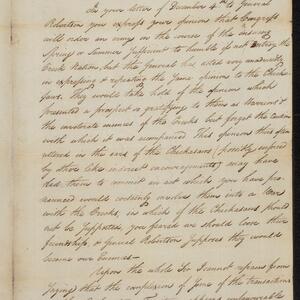 In your letter of December 4th to General
Robertson you express your opinion that Congress
will order an army in the course of the ensuing
Spring or Summer sufficient to humble if not destroy the
Creek Nation, but the General has acted very unadvisedly
in expressing & repeating the same opinion to the Chicka
saws. They would take hold of the opinion which
presented a prospect so gratifying to them as Warriors &
the inveterate enemies of the Creeks but forget the caution
with which it was accompanied. This opinion thus often
uttered in the ears of the Chickasaws (possibly enforced
by those like indirect encouragements) may have
led them to commit an act which you have pro-
nounced would certainly involve them into a War
with the Creeks, in which if the Chickasaws should
not be supported, you fear we should lose their
friendship, & General Robertson supposes they would
become our Enemies.
Upon the whole Sir I cannot refrain from
saying that the complexion of some of the Transactions